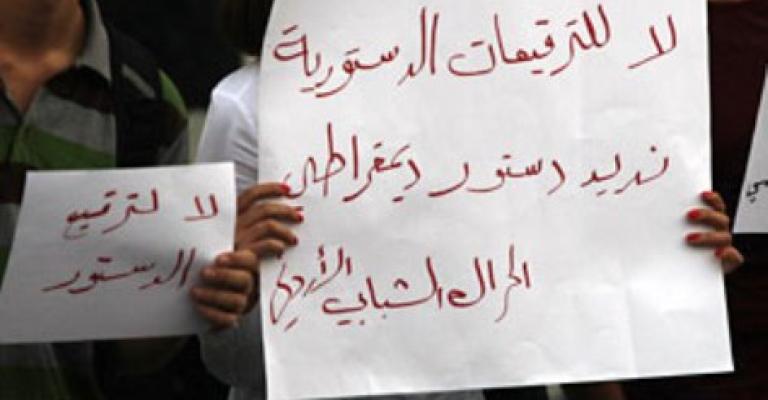 لا للترقيعات الدستورية
نريد دستور ديمقراطي
الحراك الشبابي الأردني
لا لترقيع
الدستور